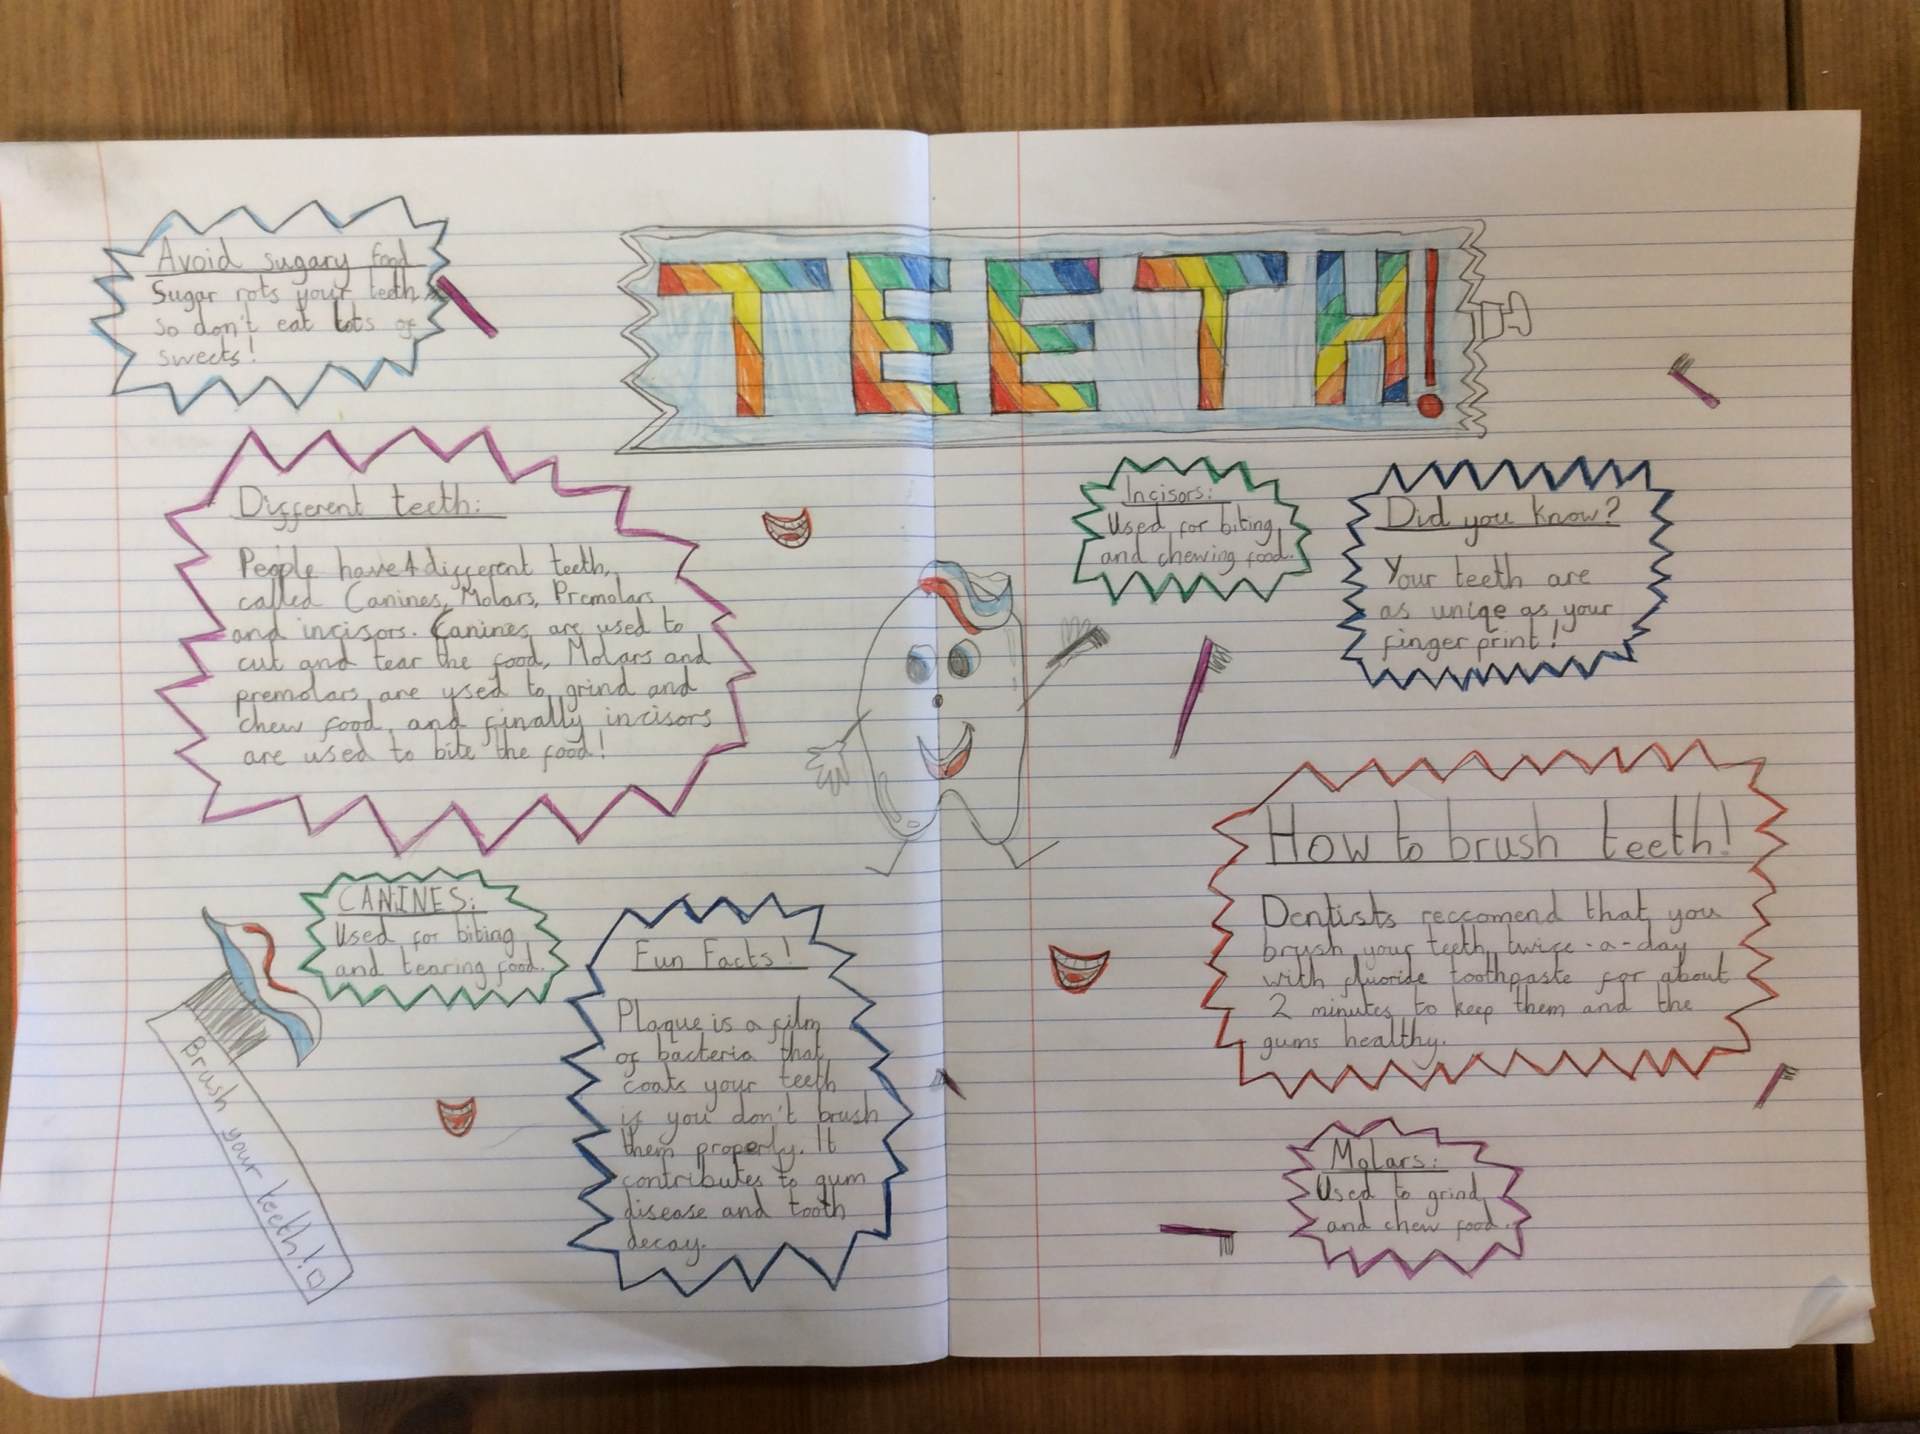 TEETH!
Avoid sugary food
Sugar rots your teeth
so don't eat lots of
sweets!
Different teeth:
People have 4 different teeth,
called Canines, Molars, Premolars
and incisors. Canines are used to
cut and tear the food, Molars and
premolars are used to grind and
chew food and finally incisors
are used to bite the food!
CANINES:
Used for biting
and tearing food.
Brush your teeth!
Fun Facts!
Plaque is a film
of bacteria that
coats your teeth
if you don't brush
them properly. It
contributes to gum
disease and tooth
decay.
Incisors:
Used for biting
and chewing food.
Did you know?
Your teeth are
as uniqe as your
finger print!
How to brush teeth!
Dentists reccomend that you
brush your teeth twice-a-day
with fluoride toothpaste for about
2 minutes to keep them and the
gums healthy.
Molars:
Used to grind
and chew food.